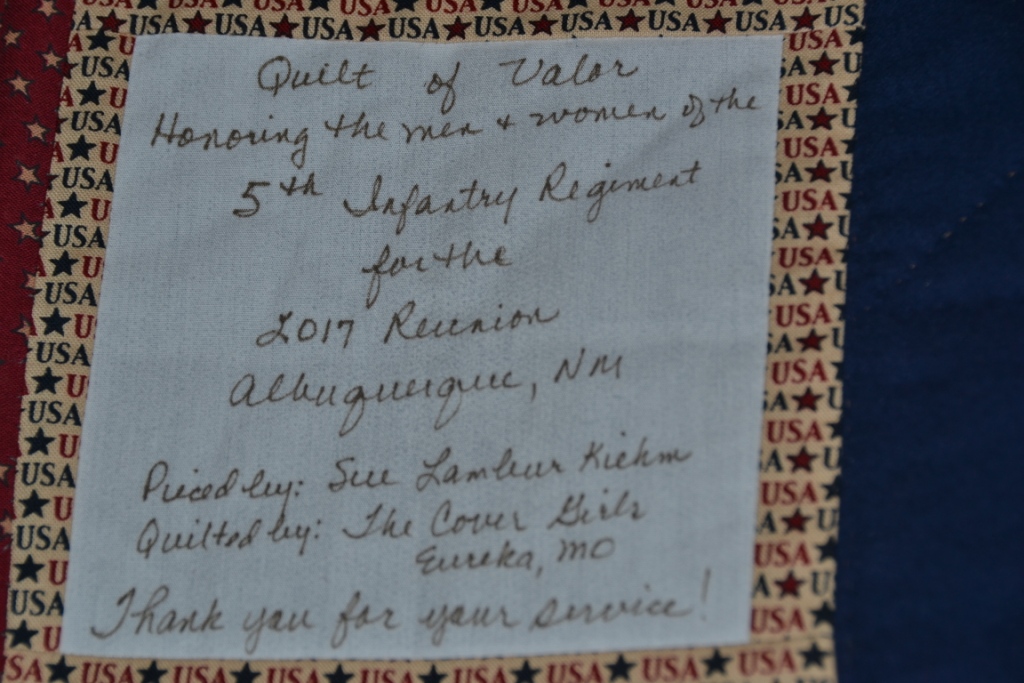 Quilt of Valor
Honoring the men + women of the
5th Infantry Regiment
for the
2017 Reunion
Albuquerque, NM
Pieced by: Sue Lambur Kiehm
Quilted by: The Cover Girls
Eureka, MO
Thank you for your service!